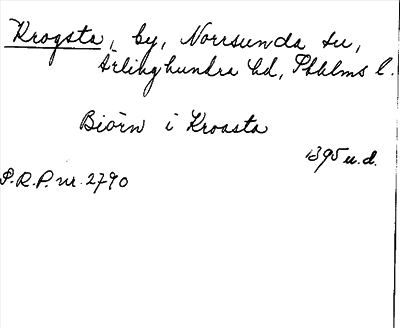 Krogsta, by, Norrsunda sn,
Ärlinghundra hd, Sthlms l.
Biörn i Kroasta
1395 u.d.
S.R.P. nr. 2790